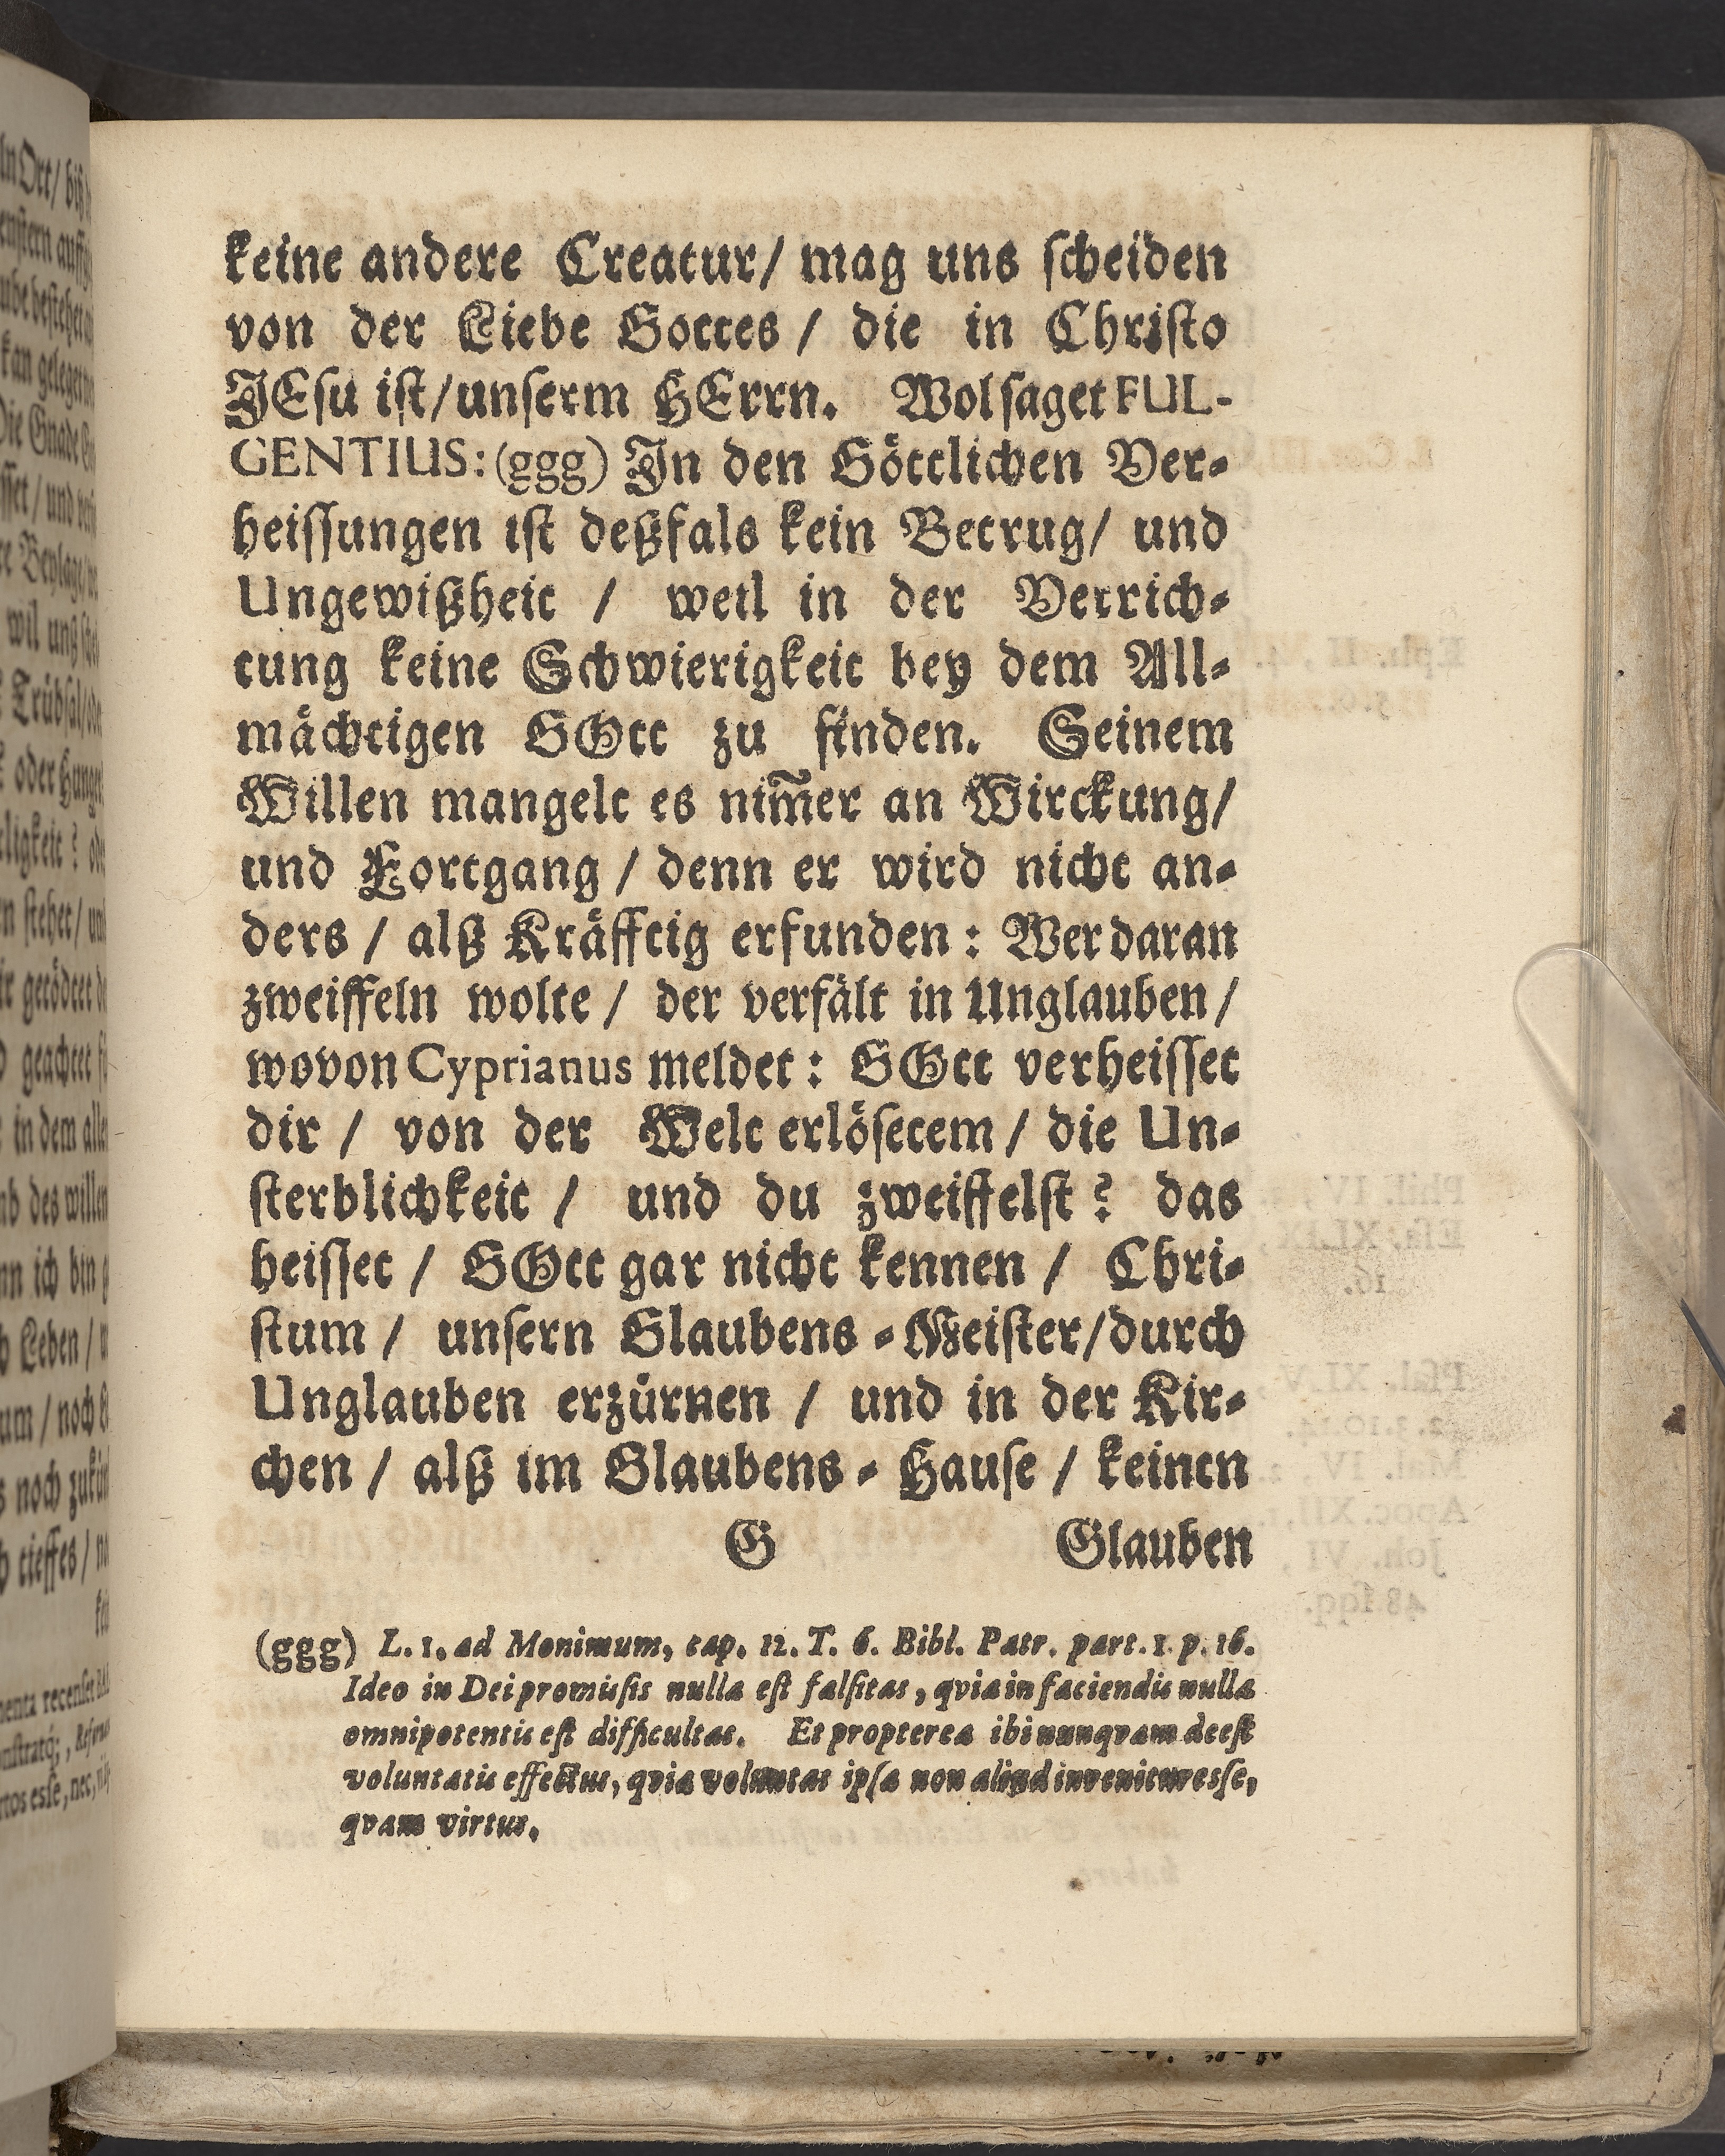 keine andere Creatur/ mag uns ſcheiden
von der Liebe Gottes / die in Chriſto
JEſu iſt/unſerm HErrn. Wol ſaget FUL-
GENTIUS: (ggg) Jn den Göttlichen Ver-
heiſſungen iſt deßfals kein Betrug/ und
Ungewißheit / weil in der Verrich-
tung keine Schwierigkeit bey dem All-
mächtigen GOtt zu finden. Seinem
Willen mangelt es nim̃er an Wirckung/
und Fortgang / denn er wird nicht an-
ders / alß Kräfftig erfunden: Wer daran
zweiffeln wolte / der verfält in Unglauben/
wovon Cyprianus meldet: GOtt verheiſſet
dir / von der Welt erlöſetem / die Un-
ſterblichkeit / und du zweiffelſt? das
heiſſet / GOtt gar nicht kennen / Chri-
ſtum / unſern Glaubens-Meiſter/durch
Unglauben erzürnen / und in der Kir-
chen / alß im Glaubens-Hauſe / keinen
G Glauben
(ggg) L. 1. ad Monimum, cap. 12. T. 6. Bibl. Patr. part. 1. p. 16.
Ideo in Dei promiſſis nulla eſt falſitas, qvia in faciendis nulla
omnipotentis eſt difficultas. Et propterea ibi nunqvam deeſt
voluntatis effectus, qvia voluntas ipſa non aliud invenitur esſe,
qvam virtus.